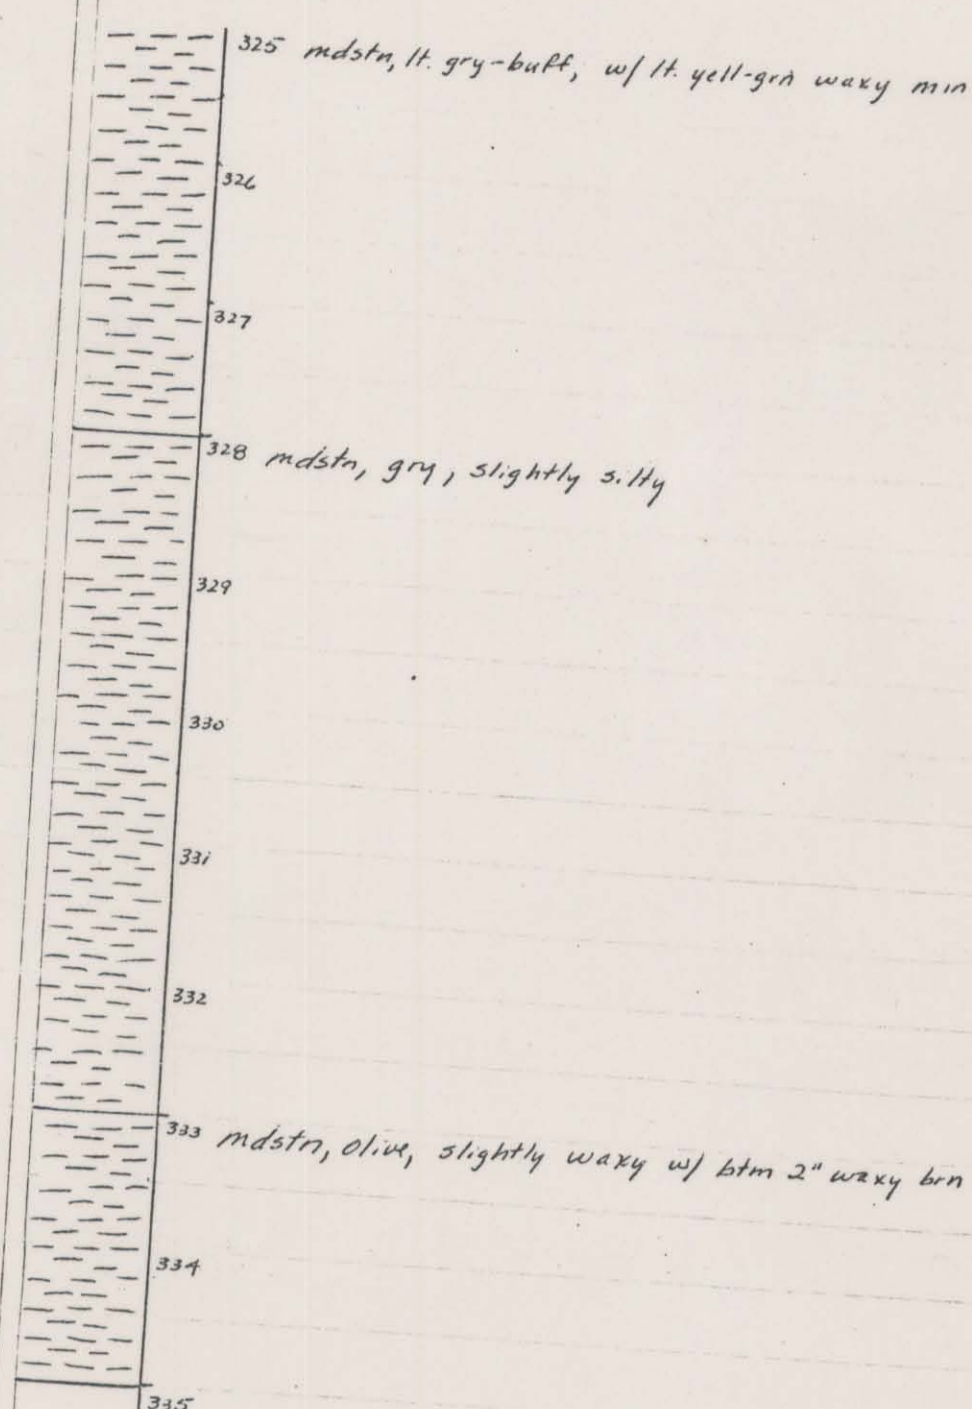 325 mdstn, lt. gry-buff, w/ lt. yell-grn waxy min
326
327
328 mdstn, gry, slightly silty
329
330
331
332
333 mdstn, olive, slightly waxy w/ btm 2" waxy brn
334
335